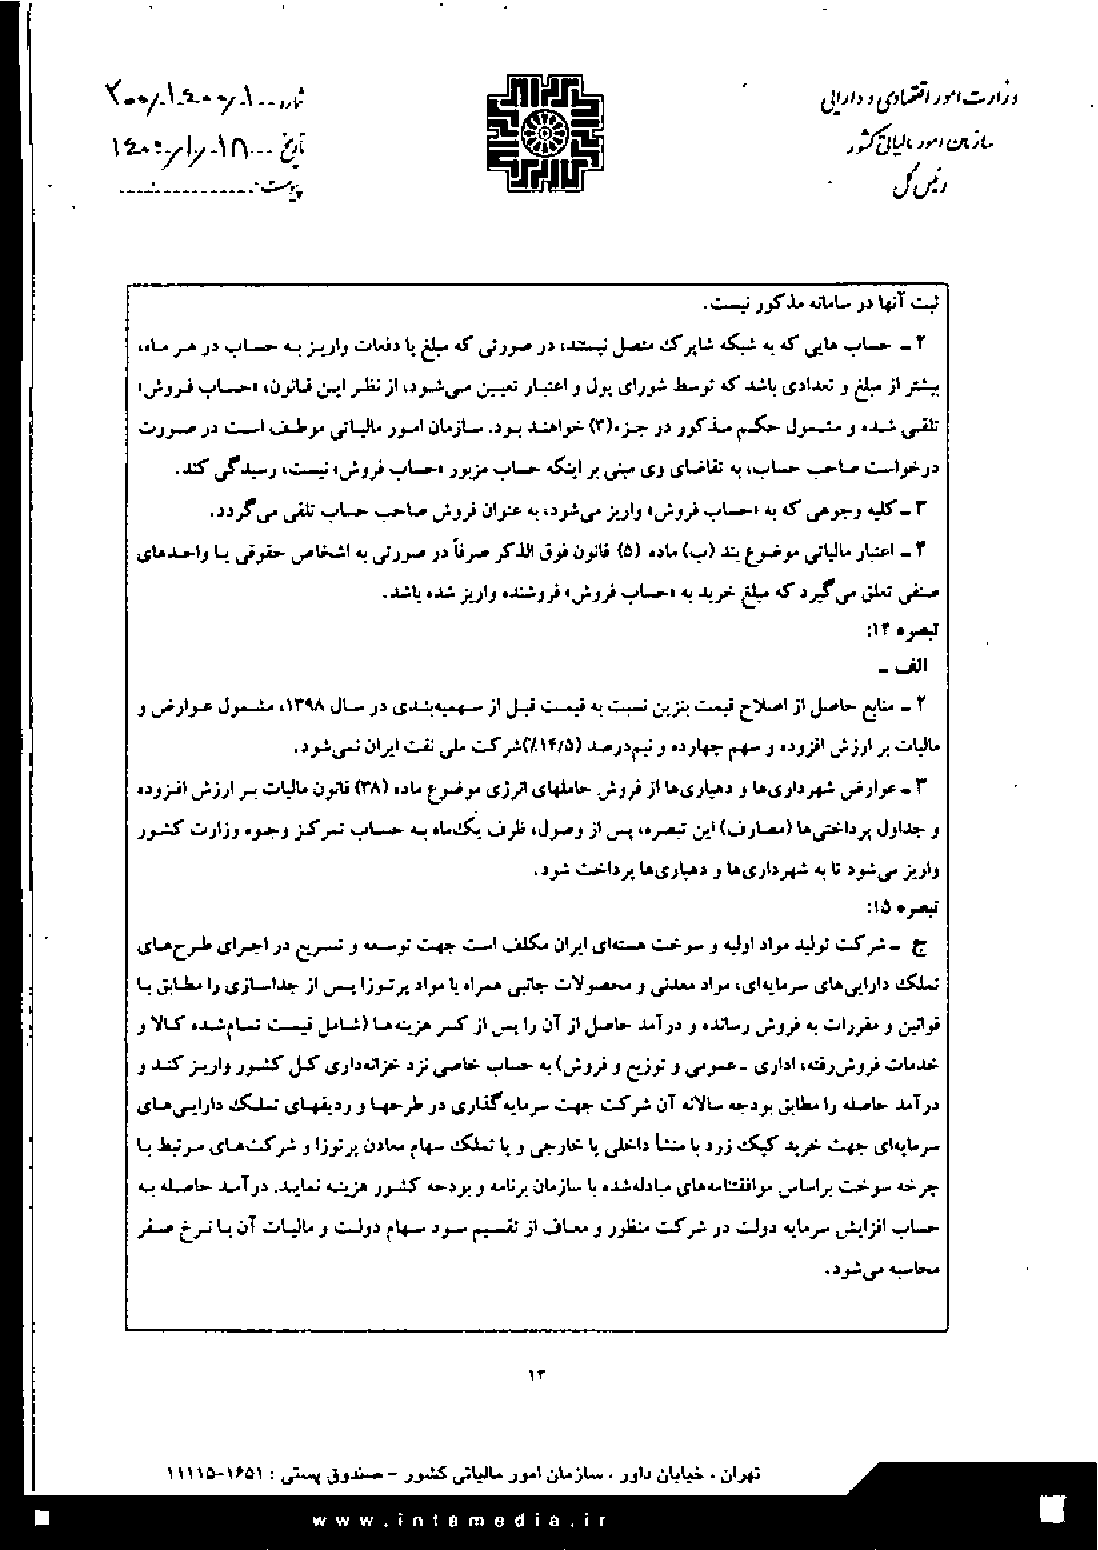 وزارت امور اقتصادی و دارایی
سازمان امور مالیاتی کشور
رئیس کل
شماره
۲۰۰/۱۴۰۰/۱
تاریخ
۱۴۰۰/۱/۱۸
پیوست:
ثبت آنها در سامانه مذکور نیست.
۲ – حساب هایی که به شبکه شاپرک متصل نیستند، در صورتی که مبلغ یا دفعات واریز به حساب در هر ماه،
بیشتر از مبلغ و تعدادی باشد که توسط شورای پول و اعتبار تعیین می‌شود، از نظر این قانون، «حساب فروش»
تلقی شده و مشمول حکم مذکور در جزء(۳) خواهند بود. سازمان امور مالیاتی موظف است در صورت
درخواست صاحب حساب، به تقاضای وی مبنی بر اینکه حساب مزبور «حساب فروش» نیست، رسیدگی کند.
۳– کلیه وجوهی که به «حساب فروش» واریز می‌شود، به عنوان فروش صاحب حساب تلقی می‌گردد.
۴ – اعتبار مالیاتی موضوع بند (ب) ماده (۵) قانون فوق الذکر صرفاً در صورتی به اشخاص حقوقی یا واحدهای
صنفی تعلق می‌گیرد که مبلغ خرید به «حساب فروش» فروشنده واریز شده باشد.
تبصره ۱۴:
الف –
۲ – منابع حاصل از اصلاح قیمت بنزین نسبت به قیمت قبل از سهمیه‌بندی در سال ۱۳۹۸، مشمول عوارض و
مالیات بر ارزش افزوده و سهم چهارده و نیم‌درصد (۱۴/۵٪)شرکت ملی نفت ایران نمی‌شود.
۳– عوارض شهرداری‌ها و دهیاری‌ها از فروش حاملهای انرژی موضوع ماده (۳۸) قانون مالیات بر ارزش افزوده
و جداول پرداختی‌ها (مصارف) این تبصره، پس از وصول، ظرف یک‌ماه به حساب تمرکز وجوه وزارت کشور
واریز می‌شود تا به شهرداری‌ها و دهیاری‌ها پرداخت شود.
تبصره ۱۵:
ج – شرکت تولید مواد اولیه و سوخت هسته‌ای ایران مکلف است جهت توسعه و تسریع در اجرای طرح‌های
تملک دارایی‌های سرمایه‌ای، مواد معدنی و محصولات جانبی همراه یا مواد پرتوزا پس از جداسازی را مطابق با
قوانین و مقررات به فروش رسانده و درآمد حاصل از آن را پس از کسر هزینه‌ها (شامل قیمت تمام‌شده کالا و
خدمات فروش‌رفته، اداری – عمومی و توزیع و فروش) به حساب خاصی نزد خزانه‌داری کل کشور واریز کند و
درآمد حاصله را مطابق بودجه سالانه آن شرکت جهت سرمایه‌گذاری در طرحها و ردیفهای تملک دارایی‌های
سرمایه‌ای جهت خرید کیک زرد با منشأ داخلی یا خارجی و یا تملک سهام معادن پرتوزا و شرکت‌های مرتبط با
چرخه سوخت براساس موافقتنامه‌های مبادله‌شده با سازمان برنامه و بودجه کشور هزینه نماید. درآمد حاصله به
حساب افزایش سرمایه دولت در شرکت منظور و معاف از تقسیم سود سهام دولت و مالیات آن با نرخ صفر
محاسبه می‌شود.
۱۳
تهران ، خیابان داور ، سازمان امور مالیاتی کشور – صندوق پستی : ۱۶۵۱-۱۱۱۱۵
www.intamedia.ir